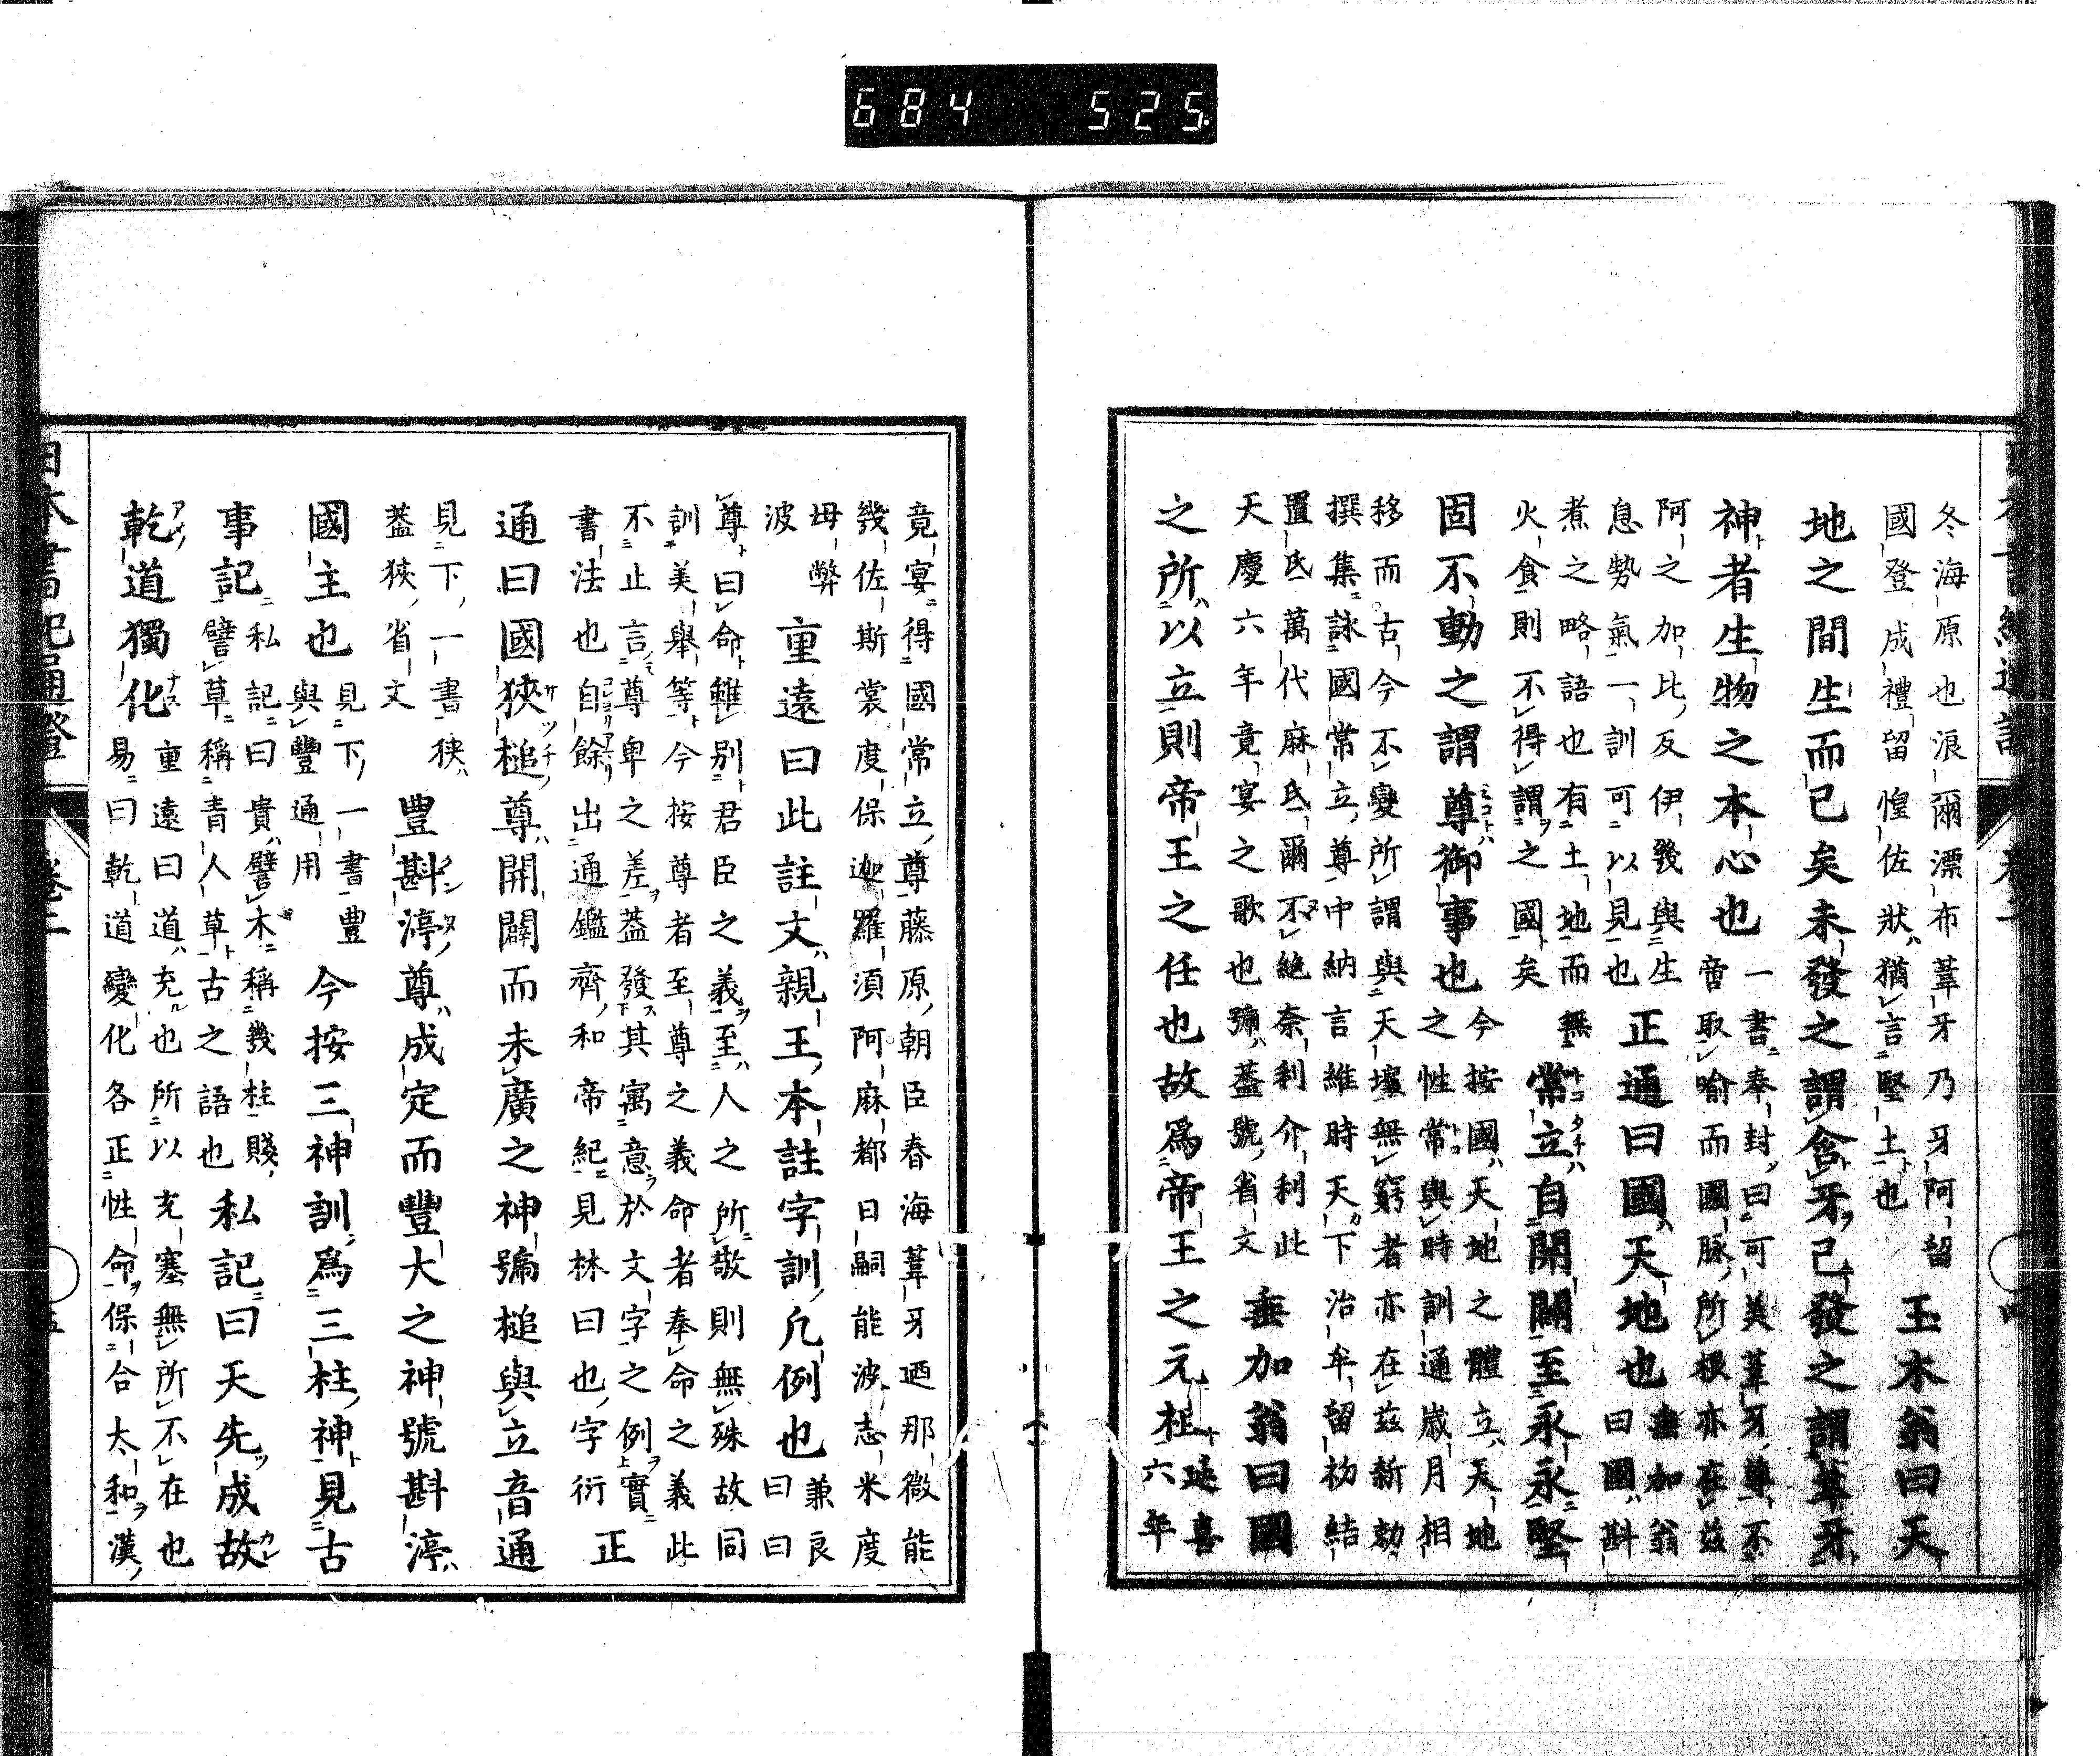 684 525.
冬海原也浪爾漂布葦牙乃牙阿留
國登成禮留惶佐狀猶言堅土也
玉木翁曰天
地之間生而已矣未發之謂含牙已發之謂葦牙
神者生物之本心也
一書奉封曰可美葦牙尊不
啻取喻而國脉所根亦在茲
阿之加比反伊發與生
息勢氣一訓可以見也
正通曰國天地也
垂加翁
曰國斟
煮之略語也有土地而無
火食則不得謂之國矣
常立自開闢至永永堅
固不動之謂尊御事也
今按國天地之體立天地
之性常與時訓通歲月相
移而古今不變所謂與天壤無窮者亦在茲新勅
撰集詠國常立尊中納言維時天下治牟留初結
置氐萬代麻氐爾不絶奈利介利此
天慶六年竟宴之歌也號蓋號省文
垂加翁曰國
之所以立則帝王之任也故爲帝王之元柱
延喜
六年
竟宴得國常立尊藤原朝臣春海葦牙迺那微能
幾佐斯裳度保迦羅須阿麻都日嗣能波志米度
毋弊
波
重遠曰此註文親王本註字訓凡例也
兼良
曰曰
尊曰命雖別君臣之義至人之所敬則無殊故同
訓美擧等今按尊者至尊之義命者奉命之義此
不止言尊卑之差蓋發其寓意於文字之例實
書法也自餘出通鑑齊和帝紀見林曰也字衍
正
通曰國狹槌尊開闢而未廣之神號槌與立音通
見下一書狹
蓋狹省文
豐斟渟尊成定而豐大之神號斟渟
國主也
見下一書豐
與豐通用
今按三神訓爲三柱神見古
事記
私記曰貴譬木稱幾柱賤
譬草稱青人草古之語也
私記曰天先成故
乾道獨化
重遠曰道充也所以充塞無所不在也
易曰乾道變化各正性命保合太和漢
日本書紀通證
卷二
五